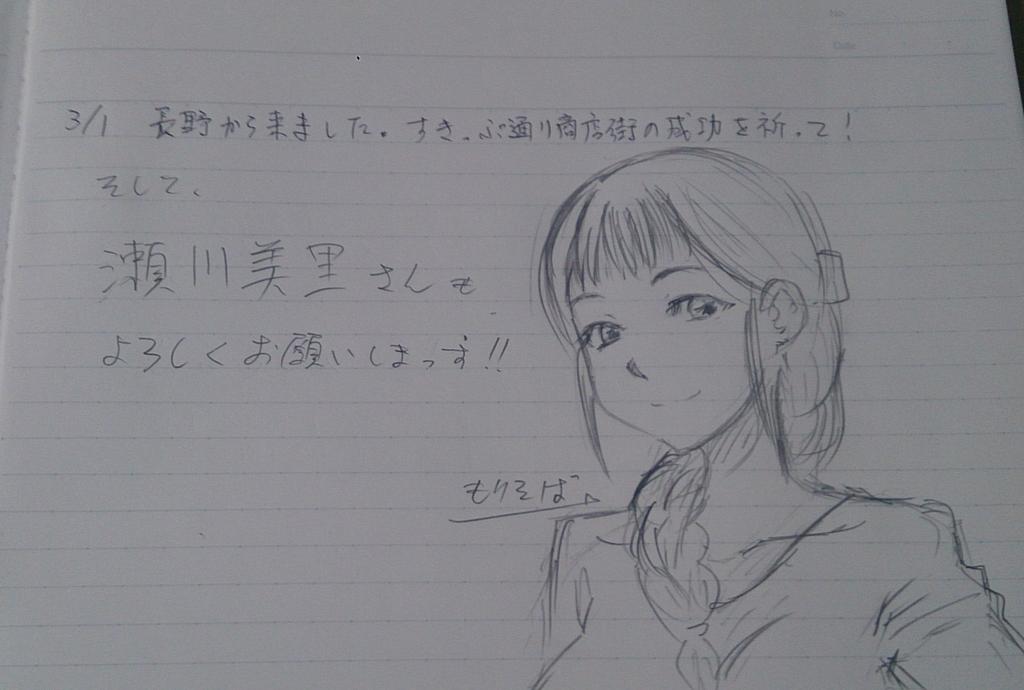 No.
Date
3/1 長野から来ました。すきっぷ通り商店街の成功を祈って!
そして、
瀬川美里さんも
よろしくお願いしまっす!!
もりそば